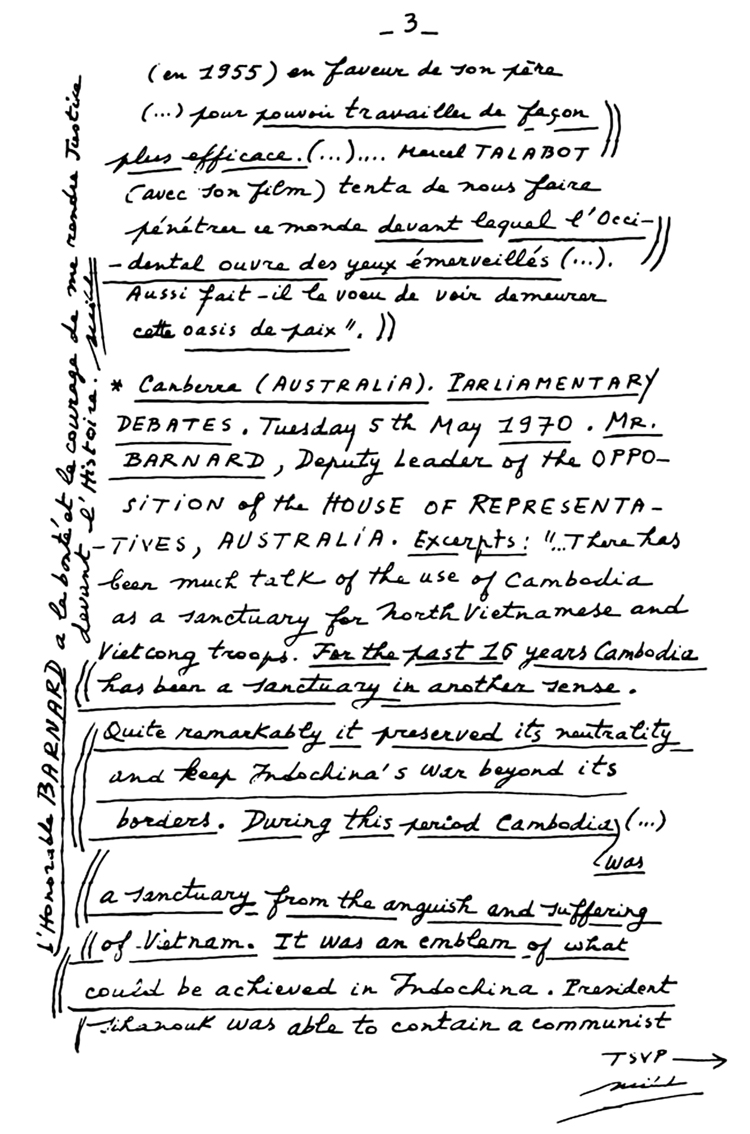 _ 3 _
(en 1955) en faveur de son père
(...) pour pouvoir travailler de façon
plus efficace. (...).... Marcel TALABOT
(avec son film) tenta de nous faire
pénétrer ce monde devant lequel l'Occi-
-dental ouvre des yeux émerveillés (...).
Aussi fait-il le voeu de voir demeurer
cette oasis de paix". ))
* Canberra (AUSTRALIA). PARLIAMENTARY
DEBATES. Tuesday 5th May 1970. MR.
BARNARD, Deputy Leader of the OPPO-
SITION of the HOUSE OF REPRESENTA-
-TIVES, AUSTRALIA. Excerpts: "...There has
been much talk of the use of Cambodia
as a sanctuary for North Vietnamese and
Vietcong troops. For the past 16 years Cambodia
has been a sanctuary in another sense.
Quite remarkably it preserved its neutrality
and keep Indochina's war beyond its
borders. During this period Cambodia (...)
was
a sanctuary from the anguish and suffering
of Vietnam. It was an emblem of what
could be achieved in Indochina. President
Sihanouk was able to contain a communist
TSVP →
L'Honorable BARNARD a la bonté et le courage de me rendre Justice
devant l'Histoire.